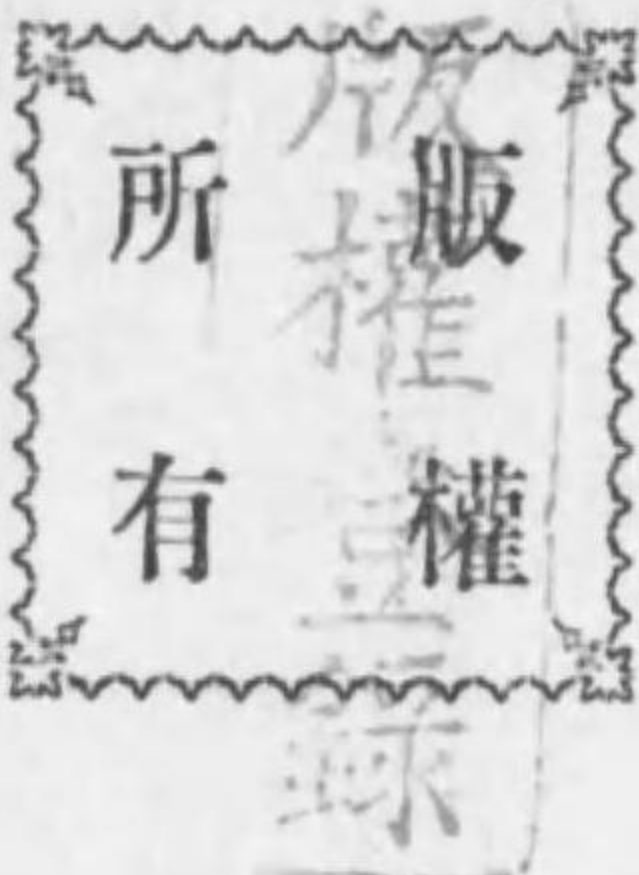 版權
所有
版權登録